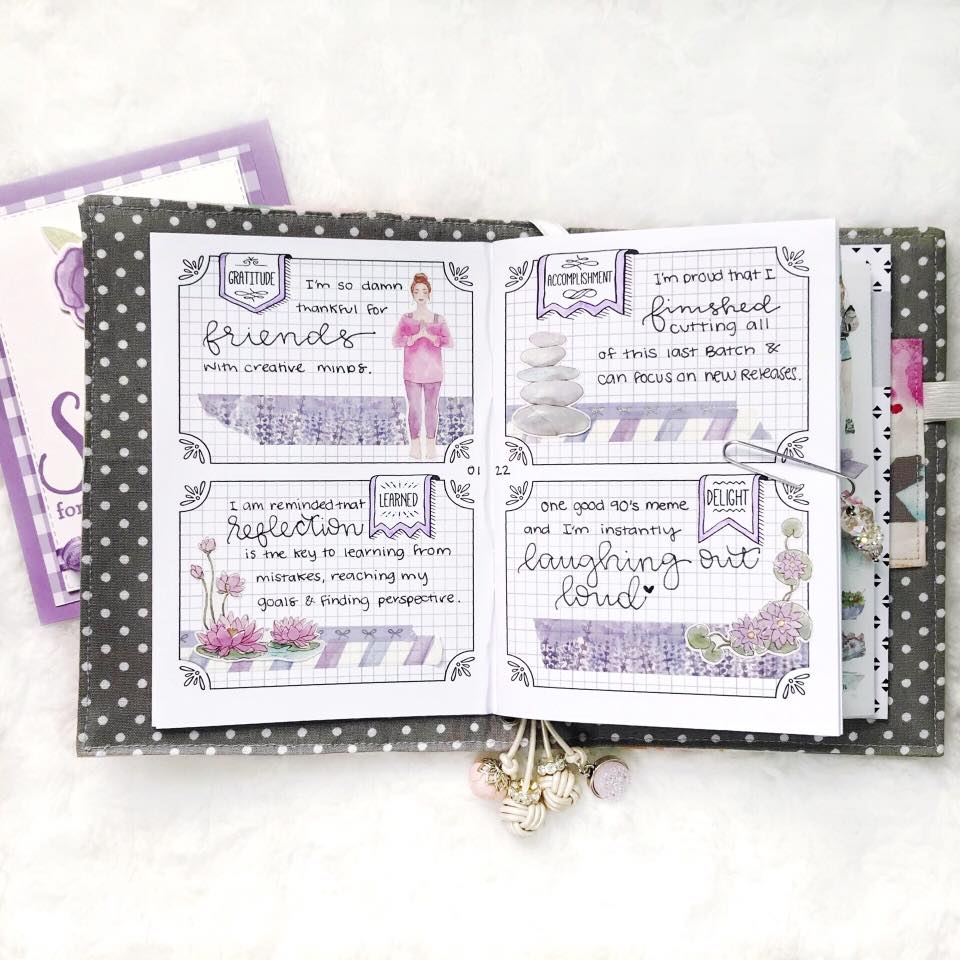 GRATITUDE
I'm so damn
thankful for
friends
with creative minds.
LEARNED
I am reminded that
reflection
is the key to learning from
mistakes, reaching my
goals & finding perspective.
ACCOMPLISHMENT
I'm proud that I
finished
cutting all
of this last Batch &
can focus on new Releases.
DELIGHT
one good 90's meme
and I'm instantly
laughing out
loud
S
for